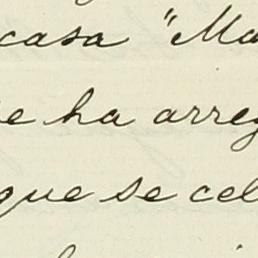 casa "Ma
e ha arreg
que se cel